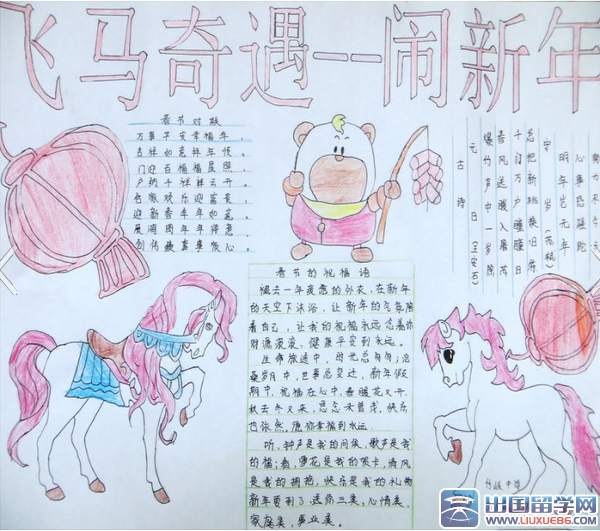 飞马奇遇——闹新年
春节对联
万事平安幸福年。
吉祥如意拜年顺。
门迎百福福星照，
户纳千祥祥云开。
合家欢乐迎富贵，
迎新春年年如意。
展鸿图年年得意，
元日(王安石)
古诗
爆竹声中一岁除
春风送暖入屠苏
千门万户曈曈日
总把新桃换旧符
守岁(苏轼)
明年岂无年
心事恐蹉跎
努力尽今夕
春节的祝福语
褪去一年疲惫的外衣，在新年
的天空下沐浴，让新年的气氛陪
着自己，让我的祝福永远念着你
财源滚滚，健康平安到永远。
生命旅途中，时光总匆匆；沧
桑岁月中，世事总变迁，新年假
期中，祝福在心中，春暖花又开，
秋去冬又来，思念未曾老，快乐
也依然。愿你幸福到永远.
听，钟声是我的问候，歌声是我
的福；看，雪花是我的贺卡，清风
是我的拥抱，快乐是我的礼物
新年要到了，送你三美，心情美，
家庭美，事业美。
出国留学网
www.liuxue86.com